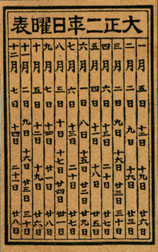 大正二年日曜表
一月 五日 十二日 十九日 廿六日
二月 二日 九日 十六日 廿三日
三月 二日 九日 十六日 廿三日 三十日
四月 六日 十三日 二十日 廿七日
五月 四日 十一日 十八日 廿五日
六月 一日 八日 十五日 廿二日 廿九日
七月 六日 十三日 二十日 廿七日
八月 三日 十日 十七日 廿四日 卅一日
九月 七日 十四日 廿一日 廿八日
十月 五日 十二日 十九日 廿六日
十一月 二日 九日 十六日 廿三日 三十日
十二月 七日 十四日 廿一日 廿八日